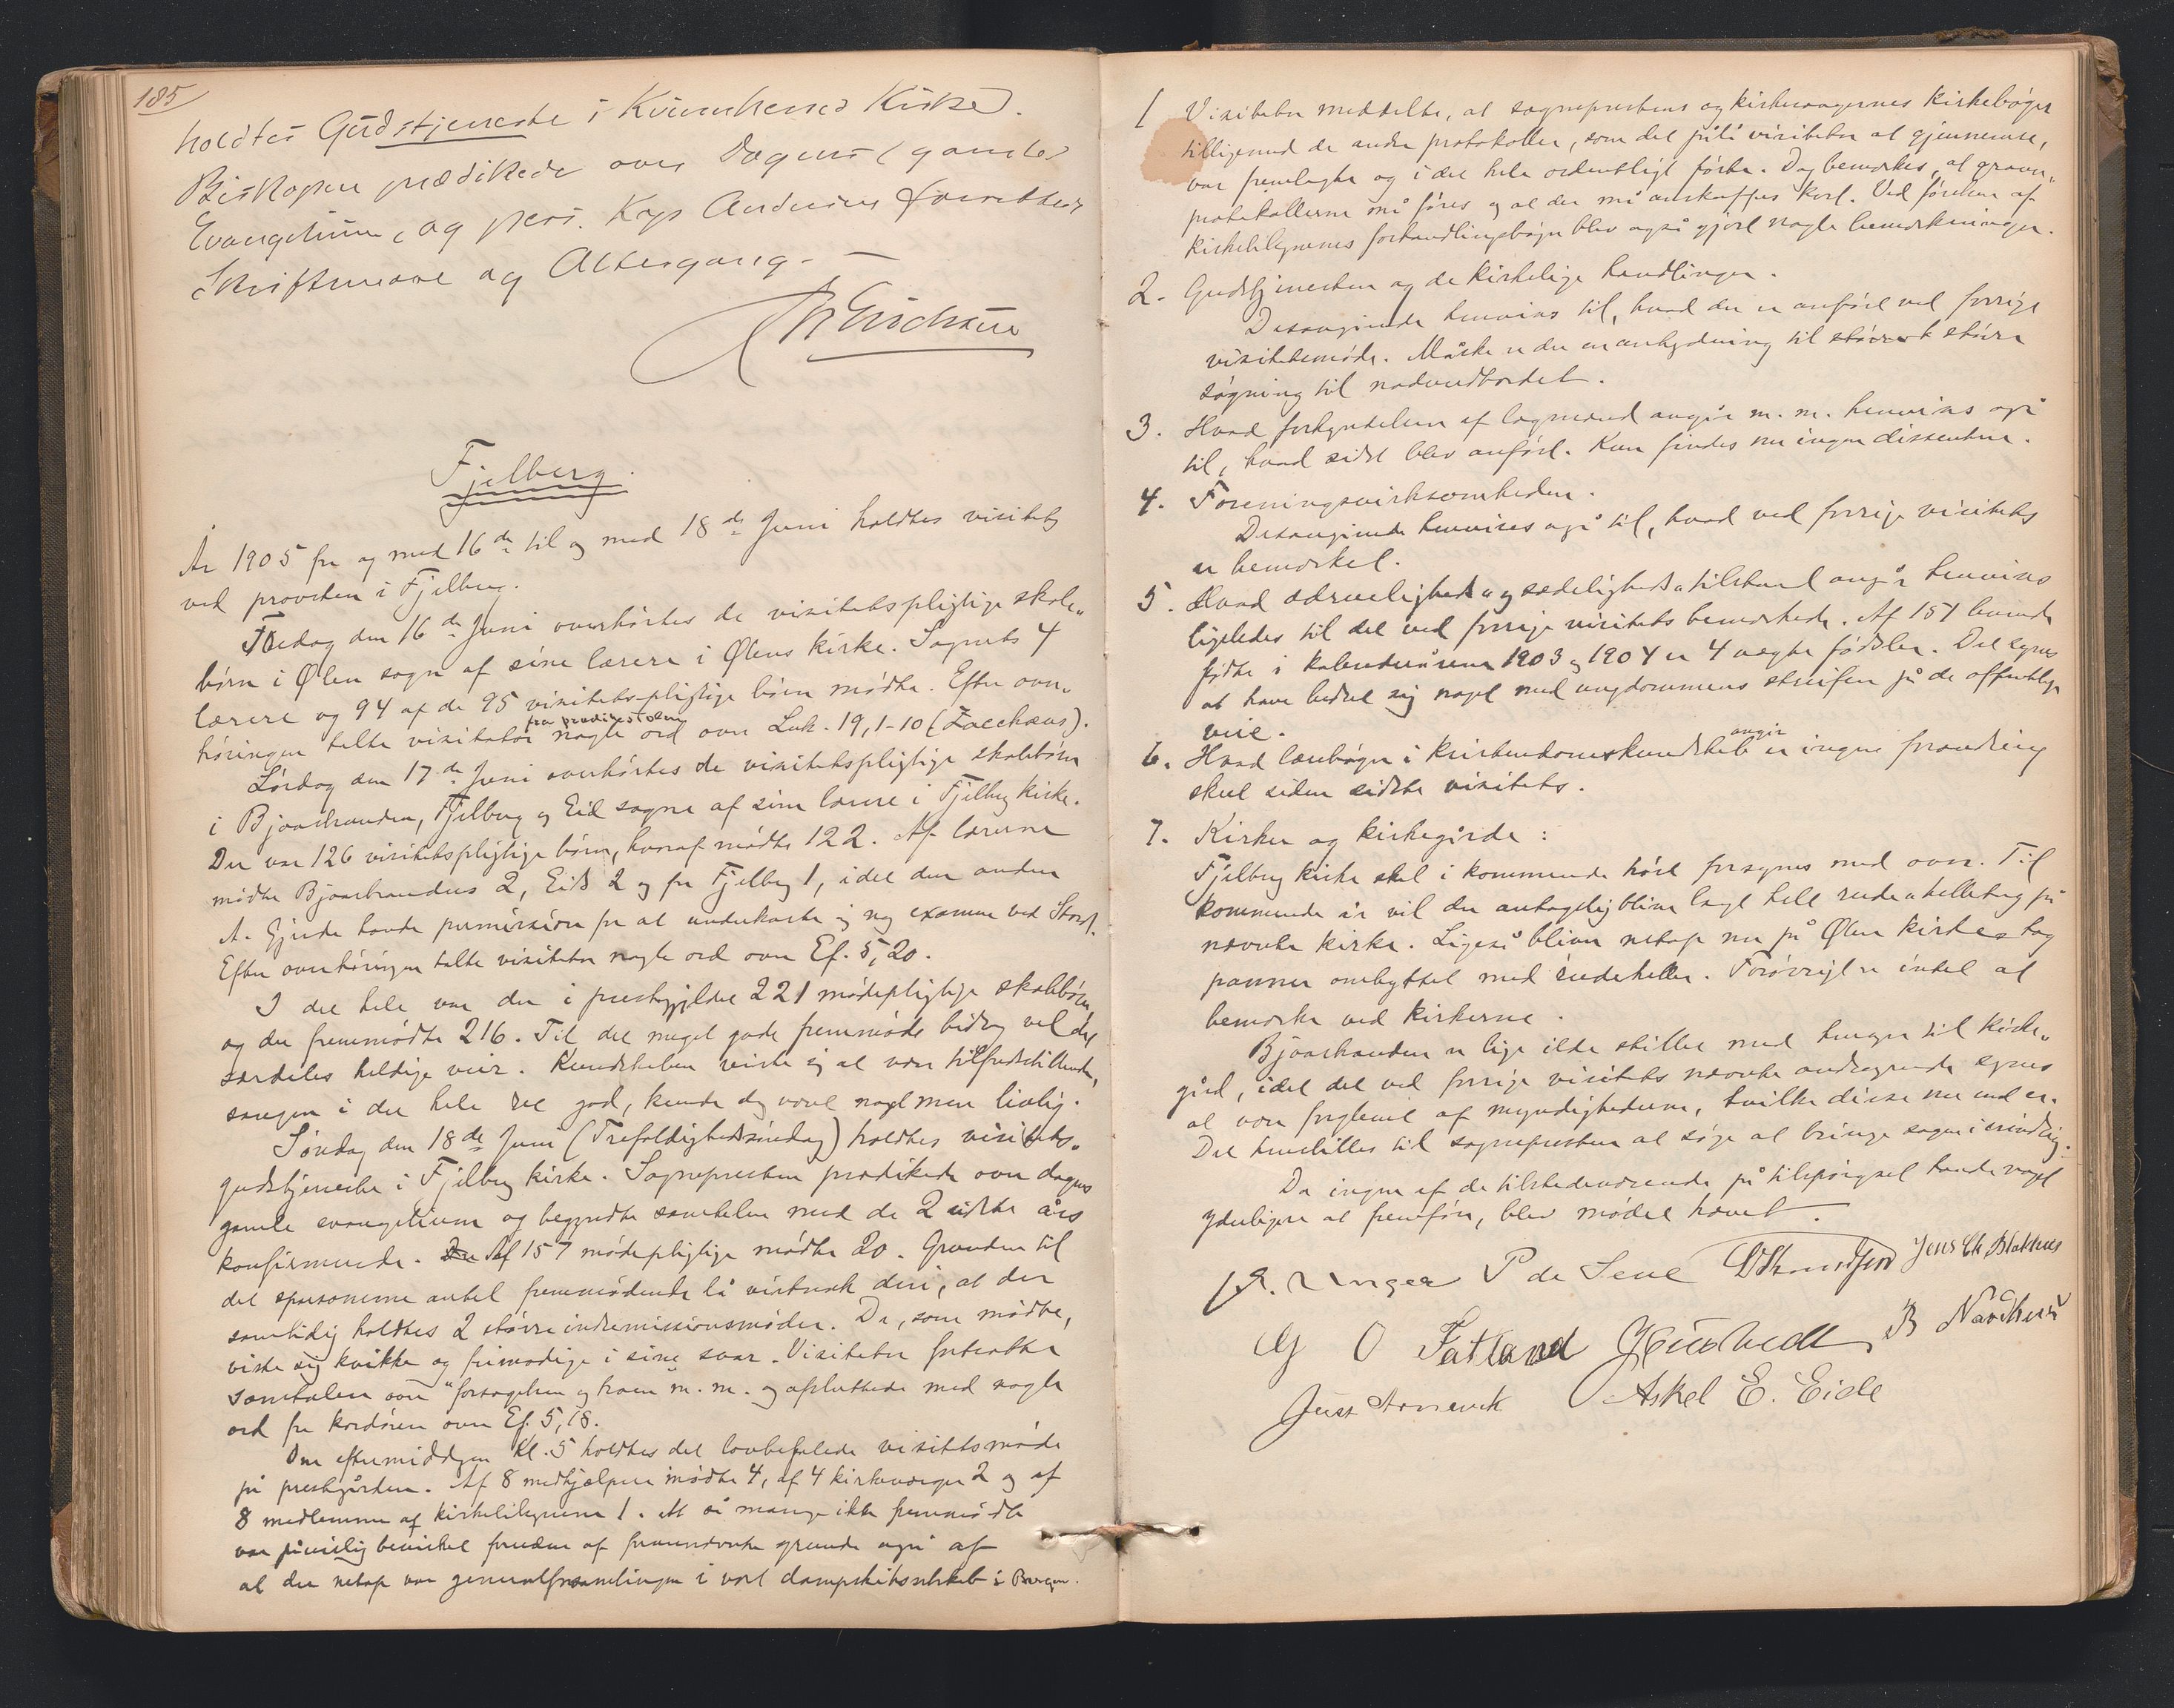 185
holdtes Gudstjeneste i Kvinnherred Kirke.
Biskopen prædikede over Dagens gamle
Evangelium, og pers. Kap Andersen forrettede
Skriftemaal og Altergang. —
Erichsen
Fjelberg.
År 1905 fra og med 16de til og med 18de Juni holdtes visitats
ved provsten i Fjelberg.
Fredag den 16de Juni overhørtes de visitatspligtige skole-
børn i Ølen sogn af sine lærere i Ølens kirke. Sognets 4
lærere og 94 af de 95 visitatspligtige børn mødte. Efter over-
høringen talte visitator fra prædikestolen nogle ord over Luk. 19,1-10 (Zacchæus).
Lørdag den 17de Juni overhørtes de visitatspligtige skolebørn
i Bjoastranden, Fjelberg og Eid sogne af sine lærere i Fjelberg kirke.
Der var 126 visitatspligtige børn, hvoraf mødte 122. Af lærerne
mødte Bjoastrandens 2, Eids 2 og fra Fjelberg 1, idet den anden
A. Gjerde havde permission for at underkaste sig ny examen ved Stord.
Efter overhøringen talte visitator nogle ord over Ef. 5,20.
I det hele var der i prestegjeldet 221 mødepligtige skolebørn
og der fremmødte 216. Til det meget gode fremmøde bidrog vel det
særdeles heldige veir. Kundskaben viste sig at være tilfredsstillende,
sangen i det hele ret god, kunde dog været noget mere livlig.
Søndag den 18de Juni (Trefoldighedssøndag) holdtes visitats-
gudstjeneste i Fjelberg kirke. Sognepresten prædikede over dagens
gamle evangelium og begyndte samtalen med de 2 sidste års
konfirmerede. Af 157 mødepligtige mødte 20. Grunden til
det sparsomme antal fremmødende lå væsentlig deri, at der
samtidig holdtes 2 større indremissionsmøder. De, som mødte,
viste sig kvikke og frimodige i sine svar. Visitator fortsatte
samtalen over "forsagelsen og troen" m. m. og afsluttede med nogle
ord fra kordøren over Ef. 5,18.
Om eftermiddagen Kl. 5 holdtes det lovbefalede visitatsmøde
på prestegården. Af 8 medhjælpere mødte 4, af 4 kirkeverger 2 og af
8 medlemmer af kirketilsynene 1. At så mange ikke fremmødte
var bevirket foruden af grunde også af
at der netop var generalforsamlingen i vort dampskibsselskab i Bergen.
1 Visitator meddelte, at sogneprestens og kirkevergernes kirkebøger
tilligemed de andre protokoller, som det påla visitator at gjennemse,
var fremlagte og i det hele ordentligt førte. Dog bemerkes, at grav-
protokollerne må føres og at der må anskaffes kort. Ved førelsen af
kirketilsynenes forhandlingsbøger blev også gjort nogle bemerkninger.
2. Gudstjenesten og de kirkelige handlinger.
Desangående henvises til, hvad der er anført ved forrige
visitatsmøde. Måske er der en antydning til større
søgning til nadverdbordet.
3. Hvad forkyndelsen af lægmænd angår m. m. henvises også
til, hvad sidst blev anført. Kun findes nu ingen dissentere.
4. Foreningsvirksomheden.
Desangående henvises også til, hvad ved forrige visitats
er bemerket.
5. Hvad ædruelighed og sædelighedstilstand angår henvises
ligeledes til det ved forrige visitats bemerkede. Af 151 levende
fødte i kalenderårene 1903 og 1904 er 4 uegte fødsler. Det synes
at have bedret sig noget med ungdommens streifen på de offentlige
veie.
6. Hvad lærebøger i kristendomskundskab angår er ingen forandring
skeet siden sidste visitats.
7. Kirker og kirkegårde:
Fjelberg kirke skal i kommende høst forsynes med ovn. Til
kommende år vil der antagelig blive lagt helt rudehelletag på
nævnte kirke. Ligeså bliver netop nu på Ølen kirkes tag
panner ombyttet med rudeheller. Forøvrigt er intet at
bemerke ved kirkerne.
Bjoastranden er lige ilde stillet med hensyn til kirke-
gård, idet det ved forrige visitats nævnte andragende synes
at være forglemt af myndighederne, hvilke disse nu end er.
Det henstilles til sognepresten at søge at bringe sagen i erindring.
Da ingen af de tilstedeværende på tilspørgsel havde noget
yderligere at fremføre, blev mødet hævet.
Unger P de Seue Jens Ch. Blakhus
G O Fatland B Naadhus
Askel E. Eide